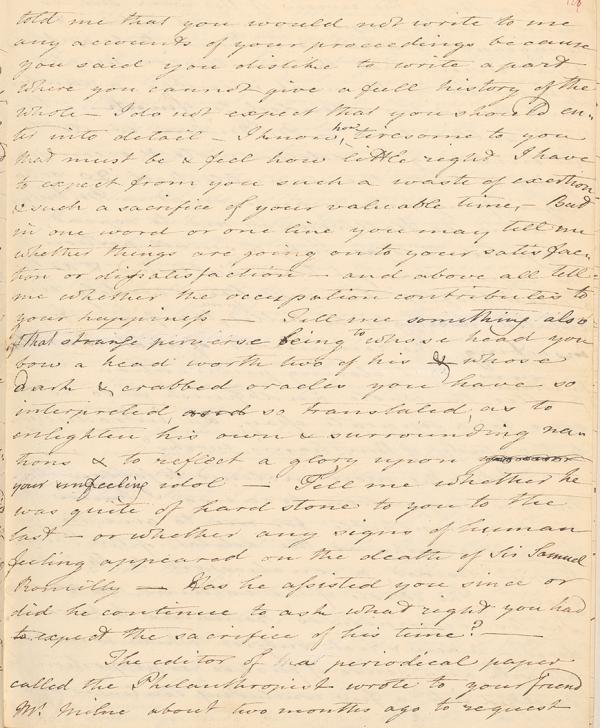 128
told me that you would not write to me
any accounts of your proceedings because
you said you dislike to write a part
where you cannot give a full history of the
whole – I do not expect that you should en-
ter into detail – I know how tiresome to you
that must be & feel how little right I have
to expect from you such a waste of exertion
& such a sacrifice of your valuable time, But
in one word or one line you may tell me
whether things are going on to your satisfac-
tion or dissatisfaction – and above all tell
me whether the occupation contributes to
your happiness — Tell me something also
of that strange perverse being to whose head you
bow a head worth two of his & whose
dark & crabbed oracles you have so
interpreted, and so translated, as to
enlighten his own & surrounding na-
tions & to reflect a glory upon
your unfeeling idol — Tell me whether he
was quite of hard stone to you to the
last – or whether any signs of human
feeling appeared on the death of Sir Samuel
Romilly — Has he assisted you since or
did he continue to ask what right you had
to expect the sacrifice of his time? —
The editor of that periodical paper
called the Philanthropist wrote to your friend
Mr. Milne about two months ago to request